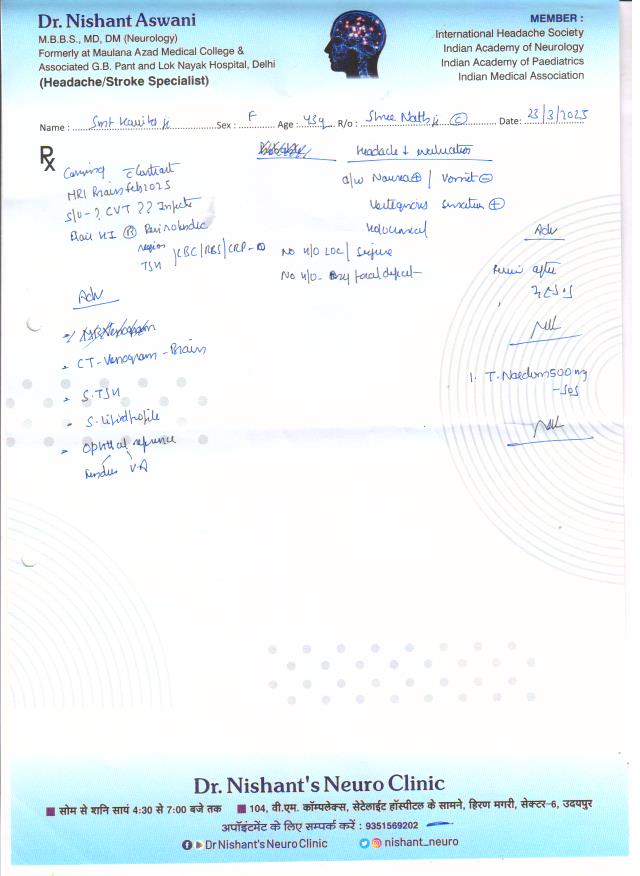 Dr. Nishant Aswani
M.B.B.S., MD, DM (Neurology)
Formerly at Maulana Azad Medical College &
Associated G.B. Pant and Lok Nayak Hospital, Delhi
(Headache/Stroke Specialist)
MEMBER :
International Headache Society
Indian Academy of Neurology
Indian Academy of Paediatrics
Indian Medical Association
Name : Smt Kavita ji Sex : F Age : 43y R/o : Shree Nath ji Date: 23/3/2025
Rx
Headache evaluation
MRI Brain Feb 2025
S/o - ? CVT ??
region
TSH
CBC/RBS/CRP-
a/w Nausea ⊕ / Vomit ⊖
Sensation ⊕
Holocranial
No H/O LOC/ Seizure
No H/O- focal deficit
Adv
after
Adv
- CT-Venogram - Brain
- S.TSH
- S. Lipid profile
- Ophthal reference
Fundus V.A
1. T. 500 mg
- SOS
Dr. Nishant's Neuro Clinic
सोम से शनि सायं 4:30 से 7:00 बजे तक 104, वी.एम. कॉम्पलेक्स, सेटेलाईट हॉस्पीटल के सामने, हिरण मगरी, सेक्टर-6, उदयपुर
अपॉइंटमेंट के लिए सम्पर्क करें : 9351569202
Dr Nishant's Neuro Clinic nishant_neuro